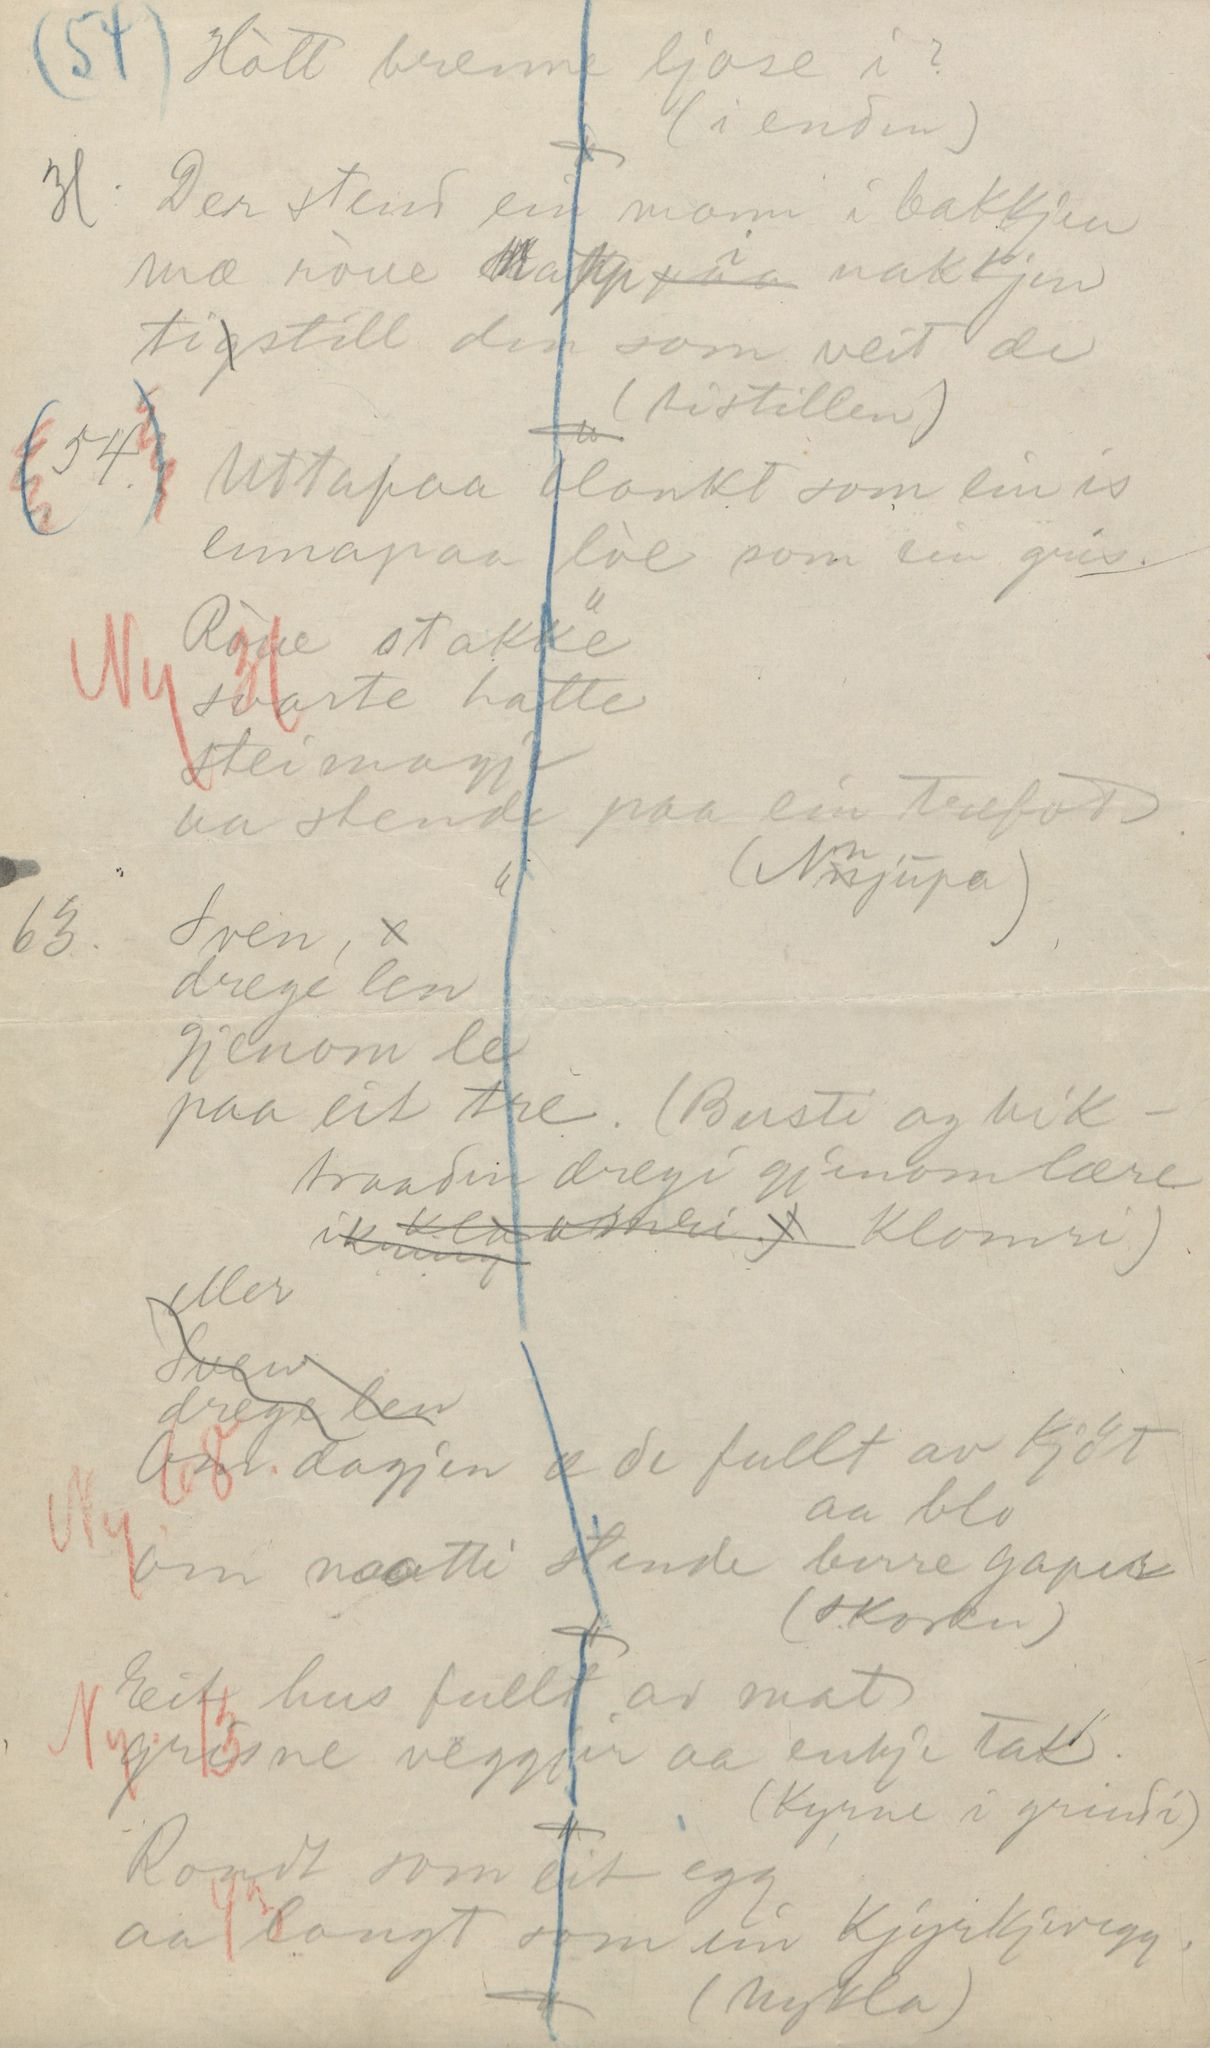 (54) Hòtt brenne ljose i?
(i enden)
31. Der stend ein mann i bakkjen
mæ röue paa i nakkjen
tigstill den som veit de
(tistillen)
(54.) Uttapaa blankt som ein is
innapaa lòe som ein gris.
Ny 31 Röue stakke
svarte hatte
steimagje
aa stende paa ein trefot
(Nnjupa)
63. Sven, x
drege len
gjenom le
paa eit tre. (Busti og bik-
traaden dregi gjenom lære
i klaamri Klomri)
eller
Sven
drege len
Ny 68. Om dagjen æ de fullt av kjöt
aa blo
om naatti stende berre gaper
(Skoren)
Ny 13 Eit hus fullt av mat
grisne veggjir aa enkje tak.
(Kyrne i grindi)
Rondt som eit egg
43 aa langt som ein kjyrkjevegg.
(Nykla)